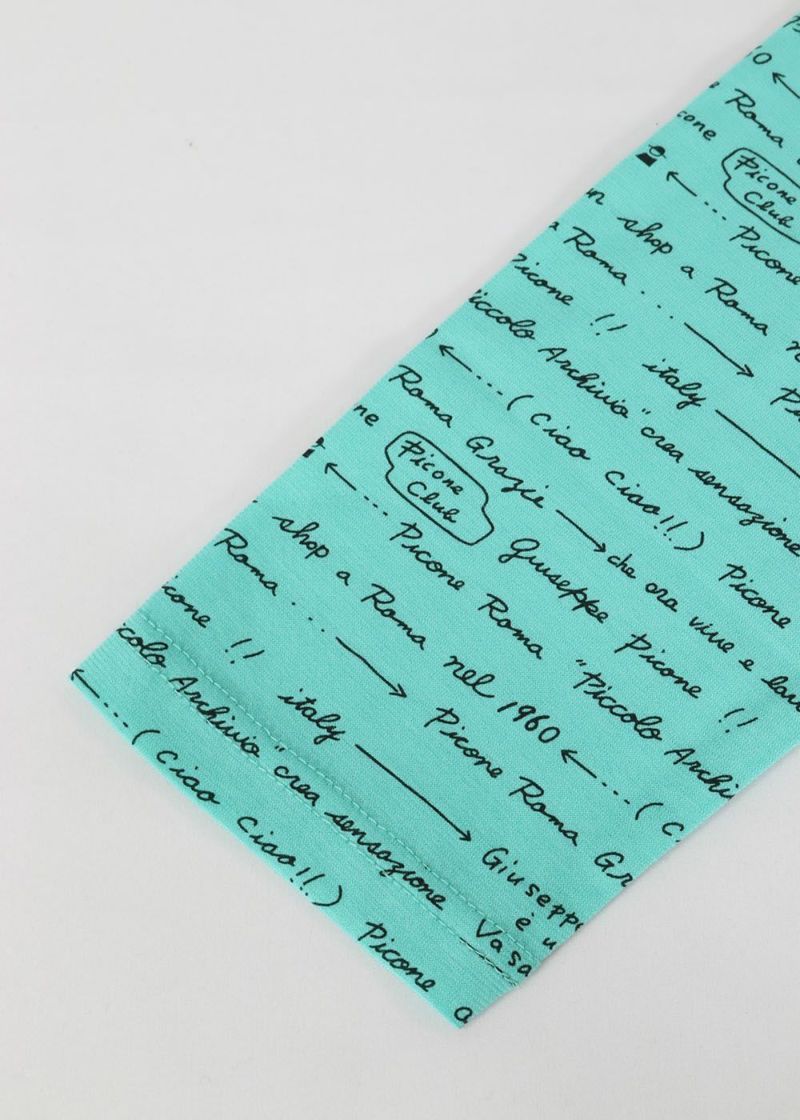 Roma
cone
Picone
Club
← ... Picone
shop a Roma
a Roma ... → P
Picone !! italy
iccolo Archivio "crea sensazione
← ... ( Ciao ciao!!) Picone
Roma Grazie → che ora vive e
ne Picone
Club
Giuseppe Picone !!
← ... Picone Roma "Piccolo Archi
shop a Roma nel 1960 ← ... ( C
Roma ... → Picone Roma Gr
icone !! italy → Giusepp
è u
Vasa
colo Archivio "crea sensazione
← ... ( Ciao ciao!!) Picone a